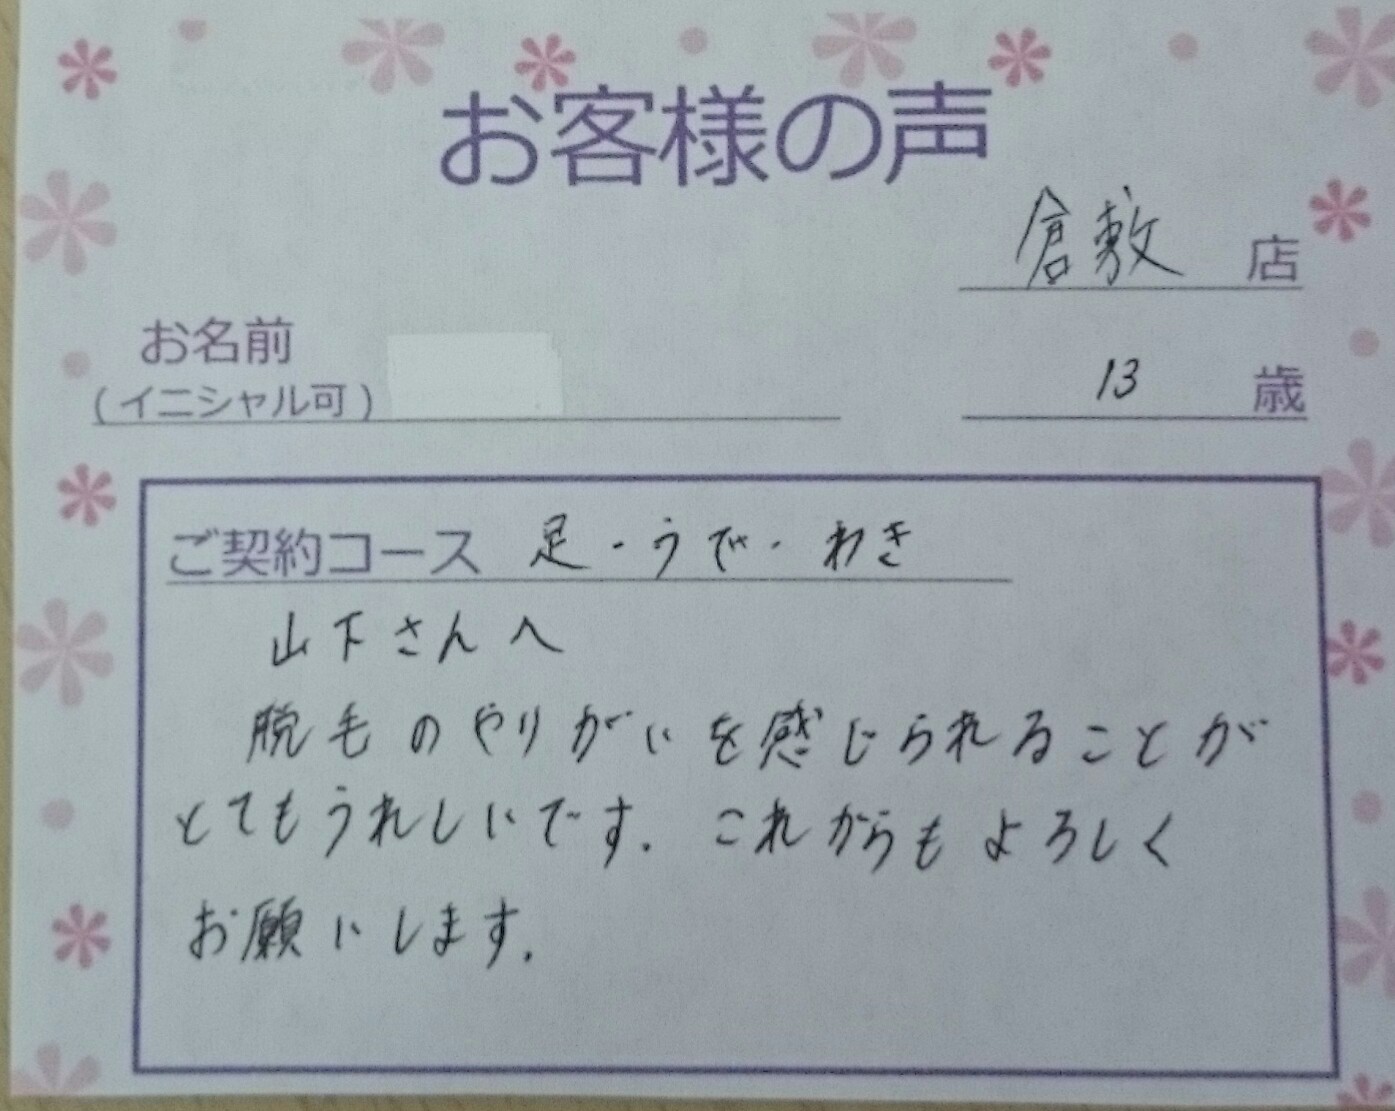 お客様の声
倉敷 店
お名前
(イニシャル可)
13 歳
ご契約コース 足・うで・わき
山下さんへ
脱毛のやりがいを感じられることが
とてもうれしいです. これからもよろしく
お願いします.